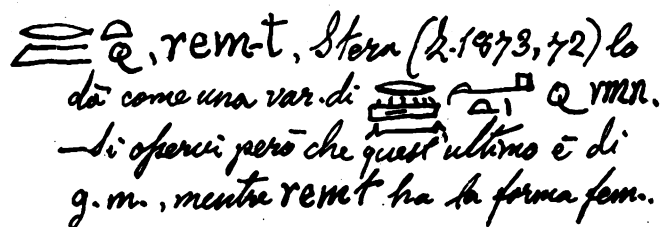 𓂋𓐛𓏏𓏲, rem-t, Stern (Z. 1873, 72) lo
dà come una var. di 𓂋𓏠𓈖𓂝𓏏𓏤𓏲 rmn.
Si osservi però che quest'ultimo è di
g. m., mentre remt ha la forma fem..